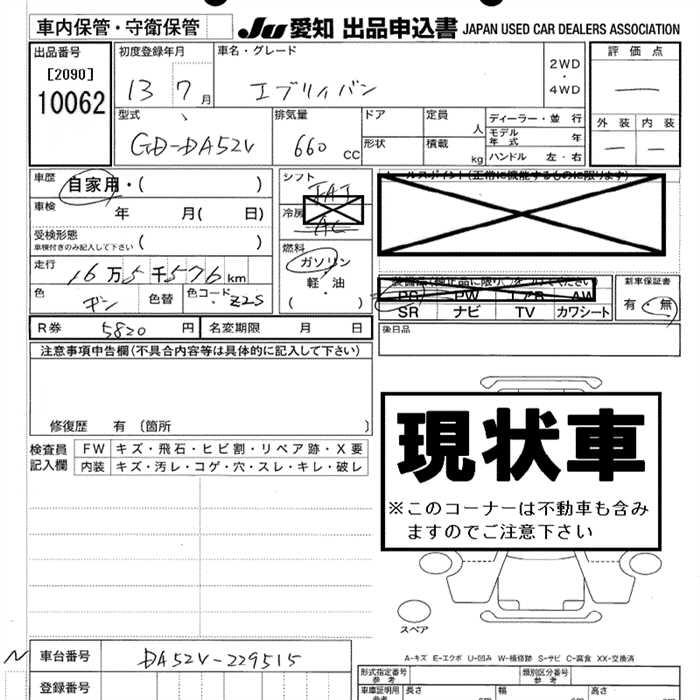 車内保管・守衛保管
JU 愛知 出品申込書 JAPAN USED CAR DEALERS ASSOCIATION
出品番号
[2090]
10062
初度登録年月
13 7 月
車名・グレード
エブリィバン
2WD
・
4WD
評価点
―
外装 内装
― ―
型式
GD-DA52V
排気量
660 CC
ドア
形状
定員 人
積載 kg
ディーラー・並行
モデル年式 年
ハンドル 左・右
車歴 自家用・( )
車検 年 月( 日)
受検形態
車検付きのみ記入して下さい ( )
走行 16万5千576km
色 ギン 色替 色コード Z2S
シフト
冷房
AC
燃料
ガソリン
・
軽・油
( )
(正常に機能するものに限ります)
PS PW エアB AW
SR ナビ TV カワシート
新車保証書
有・無
後日品
R券 5820 円 名変期限 月 日
注意事項申告欄(不具合内容等は具体的に記入して下さい)
修復歴 有 〔箇所 〕
検査員記入欄
FW キズ・飛石・ヒビ割・リペア跡・X要
内装 キズ・汚レ・コゲ・穴・スレ・キレ・破レ
現状車
※このコーナーは不動車も含み
ますのでご注意下さい
スペア
A-キズ E-エクボ U-凹み W-補修跡 S-サビ C-腐食 XX-交換済
N 車台番号 DA52V-229515
登録番号
形式指定番号
参考
類別区分番号
参考
車庫証明用
参考
長さ 幅 高さ